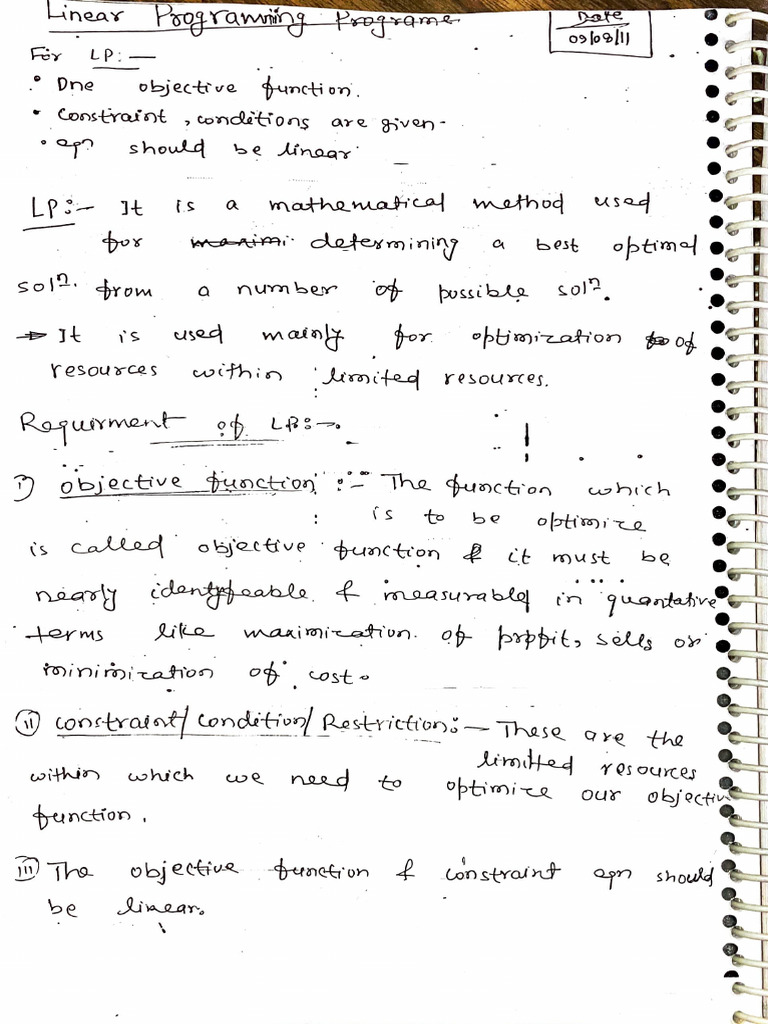 Linear Programming Programe
Date
09/08/11
For LP:—
• One objective function.
• Constraint, conditions are given.
• eqn should be linear
LP:- It is a mathematical method used
for maximi. determining a best optimal
solⁿ. from a number of possible solⁿ.
→ It is used mainly for optimization to of
resources within limited resources.
Requirment of LP:-.
i) objective function :- The function which
is to be optimize
is called objective function & it must be
nearly identyfeable & measurable in quantative
terms like maximization of profit, sells or
minimization of cost.
(ii) constraint/Condition/Restriction:- These are the
limitted resources
within which we need to optimize our objectiv
function.
(iii) The objective function & constraint eqn should
be linear.